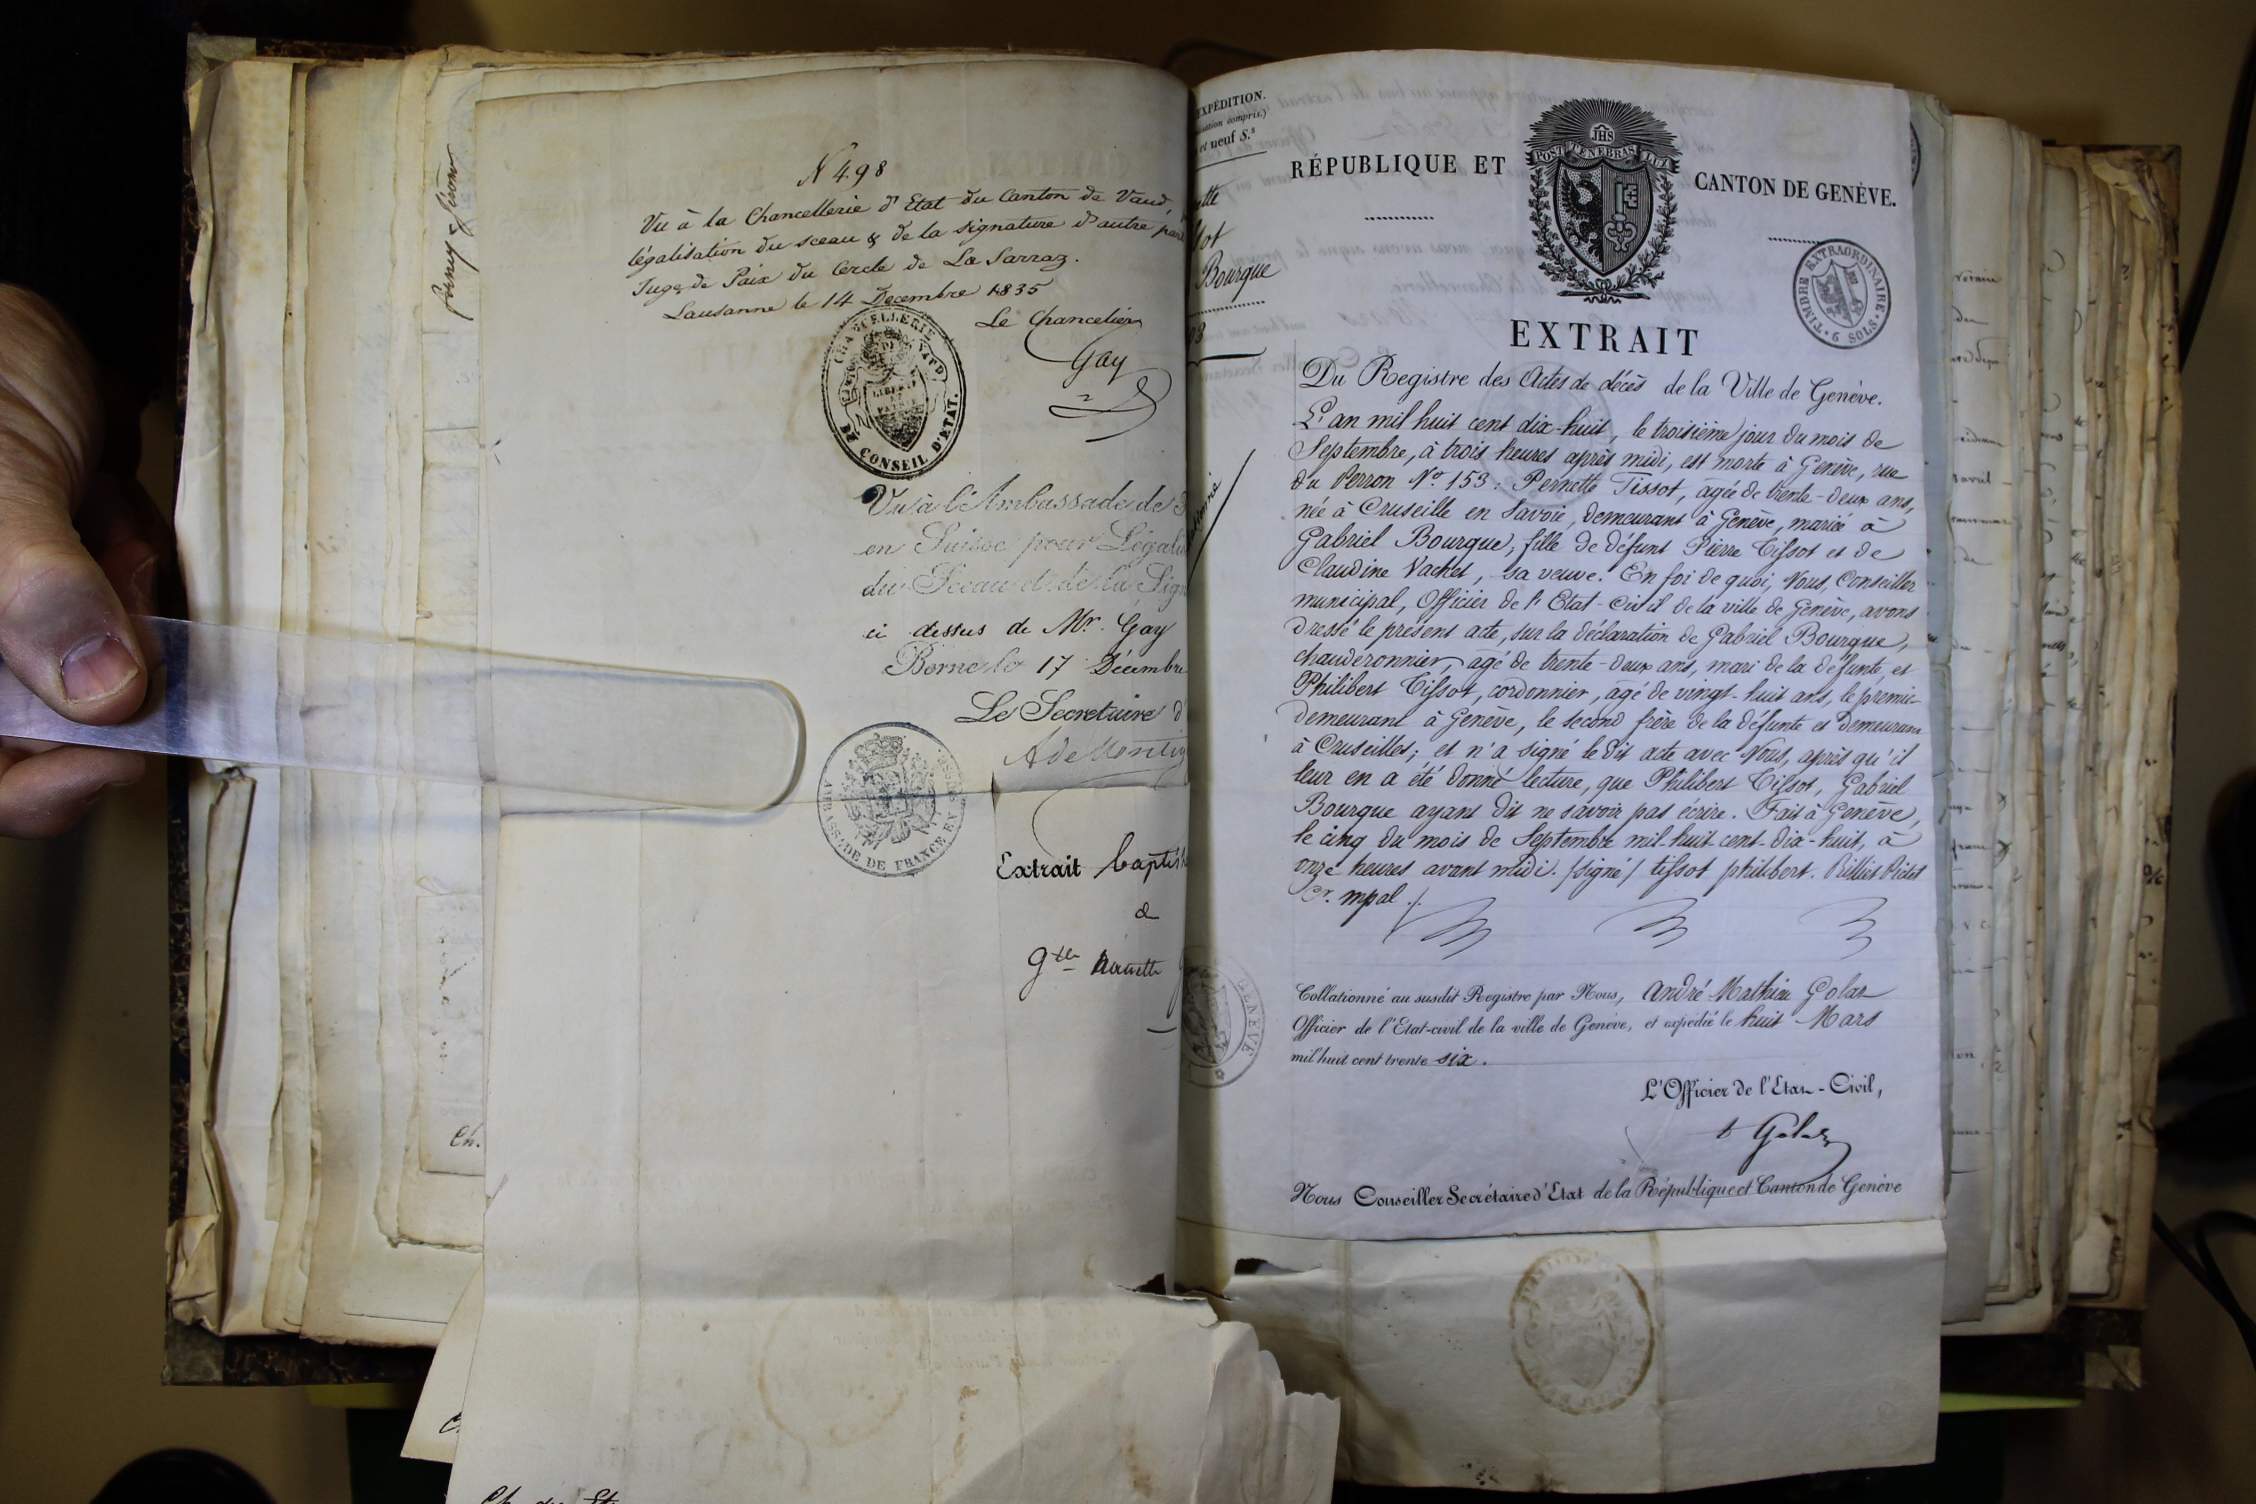 N 498
Vu à la Chancellerie d'Etat du Canton de Vaud,
légalisation du sceau & de la signature d'autre part
Juge de Paix du Cercle de La Sarraz.
Lausanne le 14 Decembre 1835
Le Chancelier
Gay
CHANCELLERIE
LIBERTÉ ET PATRIE
DU CONSEIL D'ETAT.
Vu à l'Ambassade de
en Suisse pour Légali
du Sceau et de la Sign
ci dessus de Mr. Gay
Berne le 17 Décembre
Le Secretaire d
AMBASSADE DE FRANCE EN SUISSE
Extrait baptist
de
Ch.
EXPÉDITION.
compris.)
et neuf S.s
RÉPUBLIQUE ET
CANTON DE GENÈVE.
JHS
POST TENEBRAS LUX
TIMBRE EXTRAORDINAIRE
6 SOLS
ette
sot
Bourque
EXTRAIT
Du Registre des Actes de décès de la Ville de Genève.
L'an mil huit cent dix-huit, le troisième jour du mois de
Septembre, à trois heures après midi, est morte à Genève, rue
du Perron No. 153: Pernette Tissot, agée de trente-deux ans,
née à Cruseille en Savoie, demeurant à Genève, mariée à
Gabriel Bourque, fille de défunt Pierre Tissot et de
Claudine Vachet, sa veuve. En foi de quoi, Nous, Conseiller
municipal, Officier de l'Etat-Civil de la ville de Genève, avons
dressé le present acte, sur la déclaration de Gabriel Bourque,
chauderonnier, agé de trente-deux ans, mari de la défunte, et
Philibert Tissot, cordonnier, agé de vingt-huit ans, le premier
demeurant à Genève, le second frère de la défunte et demeurant
à Cruseilles; et n'a signé le dit acte avec Nous, après qu'il
leur en a été donné lecture, que Philibert Tissot, Gabriel
Bourque ayant dit ne savoir pas écrire. Fait à Genève,
le cinq du mois de Septembre mil-huit-cent-dix-huit, à
onze heures avant midi. /signé/ tissot philibert. Rilliet Pictet
Cr. mpal ./.
GENÈVE
Collationné au susdit Registre par Nous, André Mathieu Golaz
Officier de l'Etat-civil de la ville de Genève, et expédié le huit Mars
mil huit cent trente six.
L'Officier de l'Etat-Civil,
Golaz
Nous Conseiller Secrétaire d'Etat de la République et Canton de Genève